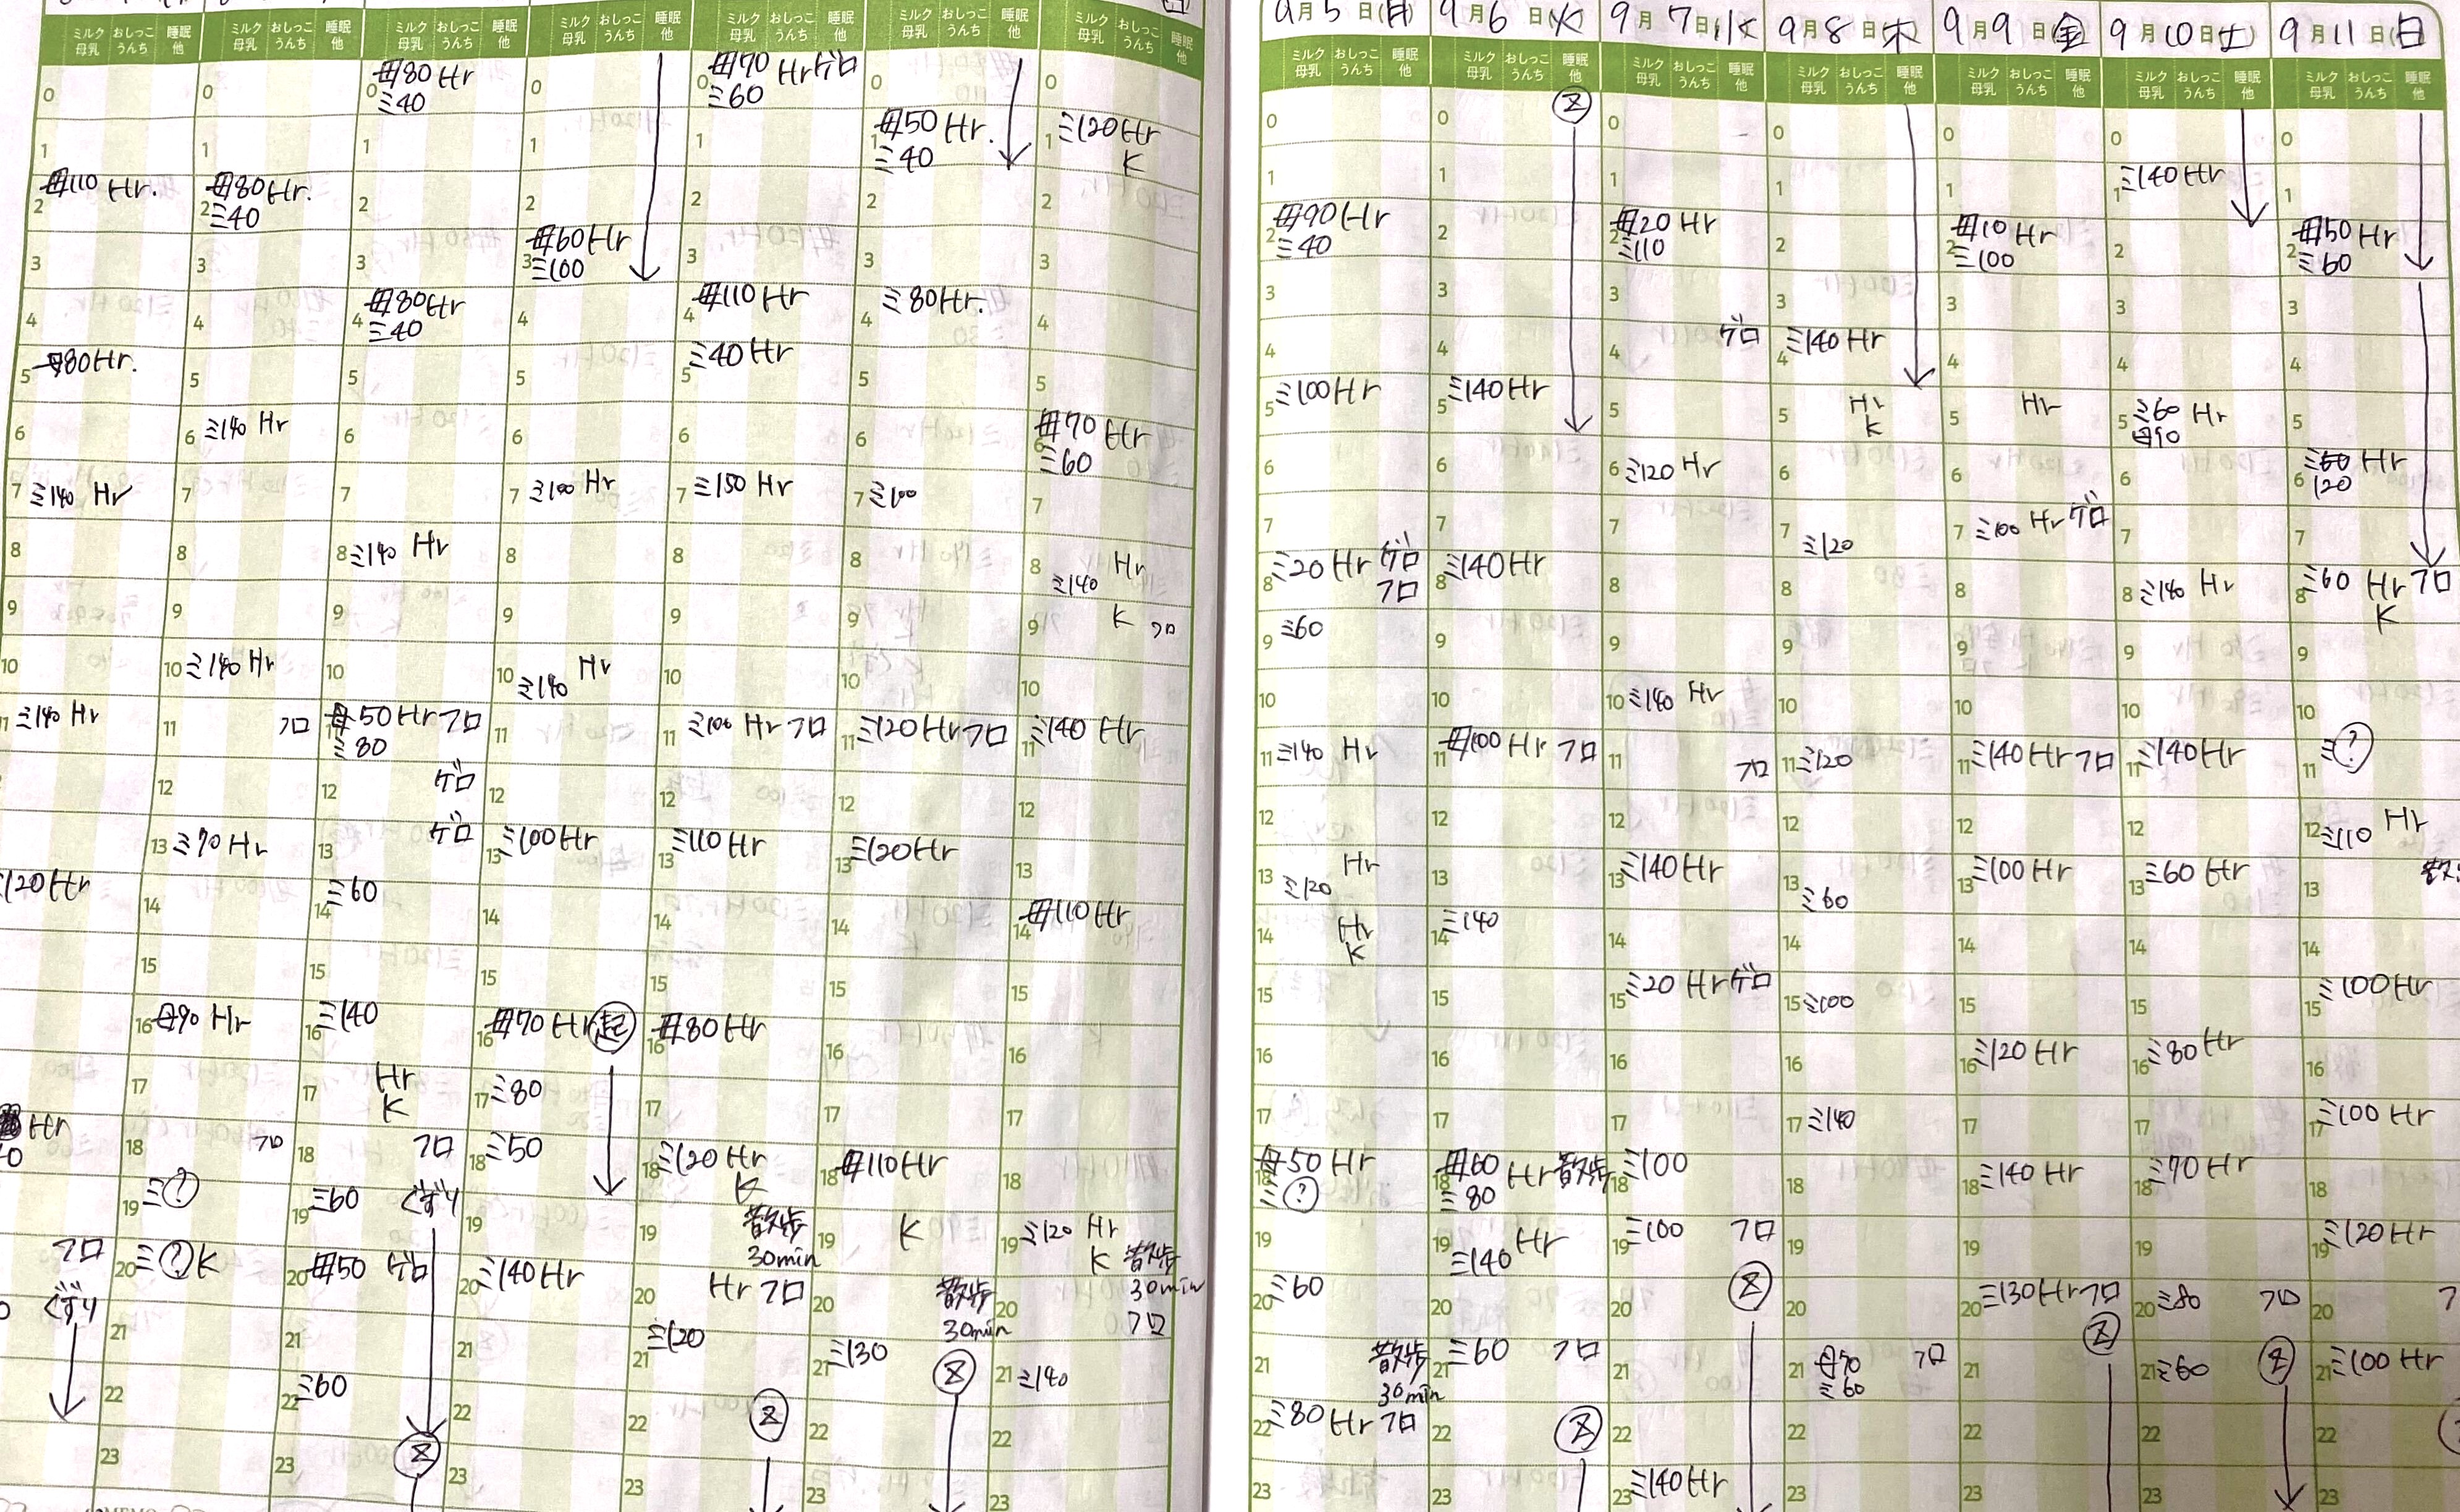 ミルク 母乳 おしっこ うんち 睡眠 他
0
1
母110 Hr.
2
3
4
5 母80Hr.
6
7 ミ140 Hr
8
9
10
11 ミ140 Hr
120Hr
Hr
フロ
ぐずり
ミルク 母乳 おしっこ うんち 睡眠 他
0
1
母80Hr.
2 ミ40
3
4
5
6 ミ140 Hr
7
8
9
10 ミ140 Hr
11 フロ
12
13 ミ70 Hr
14
15
16 母90 Hr
17
18 フロ
19 ミ?
20 ミ? K
21
22
23
ミルク 母乳 おしっこ うんち 睡眠 他
母80 Hr
0 ミ40
1
2
3
母80Hr
4 ミ40
5
6
7
8 ミ140 Hr
9
10
11 母50 Hr フロ
ミ80
12 ゲロ
13 ゲロ
14 ミ60
15
16 ミ140
17 Hr
K
18 フロ
19 ミ60 ぐずり
20 母50 ゲロ
21
22 ミ60
23 Z
ミルク 母乳 おしっこ うんち 睡眠 他
0
1
2
母60Hr
3 ミ100
4
5
6
7 ミ100 Hr
8
9
10 Hr
ミ140
11
12
13 ミ100Hr
14
15
16 母70 Hr 起
17 ミ80
18 ミ50
19
20 ミ140Hr
21
22
23
ミルク 母乳 おしっこ うんち 睡眠 他
0 母70 Hr ゲロ
ミ60
1
2
3
4 母110 Hr
5 ミ40 Hr
6
7 ミ150 Hr
8
9
10
11 ミ100 Hr フロ
12
13 ミ110 Hr
14
15
16 母80 Hr
17
18 ミ120 Hr
K
19 散歩
30min
20 Hr フロ
21 ミ120
22 Z
23
ミルク 母乳 おしっこ うんち 睡眠 他
0
1 母50 Hr.
ミ40
2
3
4 ミ80Hr.
5
6
7 ミ100
8
9
10
11 ミ120Hr フロ
12
13 ミ120Hr
14
15
16
17
18 母110Hr
19 K
20 散歩
30min
21 ミ130 Z
22
23
ミルク 母乳 おしっこ うんち 睡眠 他
0
1 ミ120Hr
K
2
3
4
5
6 母70 Hr
ミ60
7
8 Hr
ミ140
9 K フロ
10
11 ミ140 Hr
12
13
14 母110Hr
15
16
17
18
19 ミ120 Hr
K 散歩
20 30min
フロ
21 ミ140
22
23
9月5日(月)
ミルク 母乳 おしっこ うんち 睡眠 他
0
1
2 母90Hr
ミ40
3
4
5 ミ100Hr
6
7
8 ミ20 Hr ゲロ
フロ
9 ミ60
10
11 ミ140 Hr
12
13 Hr
ミ120
14 Hr
K
15
16
17
18 母50 Hr
ミ?
19
20 ミ60
21 散歩
30min
22 ミ80 Hr フロ
23
9月6日(火)
ミルク 母乳 おしっこ うんち 睡眠 他
0 Z
1
2
3
4
5 ミ140Hr
6
7
8 ミ140Hr
9
10
11 母100 Hr フロ
12
13
14 ミ140
15
16
17
18 母60 Hr 散歩
ミ80
19 Hr
ミ140
20
21 ミ60 フロ
22 Z
23
9月7日(水
ミルク 母乳 おしっこ うんち 睡眠 他
0
1
2 母20 Hr
ミ110
3
4 ゲロ
5
6 ミ120 Hr
7
8
9
10 ミ140 Hr
11 フロ
12
13 ミ140Hr
14
15 ミ20 Hr ゲロ
16
17
18 ミ100
19 ミ100 フロ
20 Z
21
22
23 ミ140Hr
9月8日(木
ミルク 母乳 おしっこ うんち 睡眠 他
0
1
2
3
4 ミ140Hr
5 Hr
K
6
7 ミ120
8
9
10
11 ミ120
12
13
ミ60
14
15 ミ100
16
17 ミ140
18
19
20
21 母70 フロ
ミ60
22
23
9月9日(金)
ミルク 母乳 おしっこ うんち 睡眠 他
0
1
2 母10 Hr
ミ100
3
4
5 Hr
6
7 ミ100 Hr ゲロ
8
9
10
11 ミ140Hr フロ
12
13 ミ100Hr
14
15
16 ミ120 Hr
17
18 ミ140 Hr
19
20 ミ130Hr フロ
21 Z
22
23
9月10日(土)
ミルク 母乳 おしっこ うんち 睡眠 他
0
1 ミ140Hr
2
3
4
5 ミ60 Hr
母90
6
7
8 ミ140 Hr
9
10
11 ミ140Hr
12
13 ミ60 Hr
14
15
16 ミ80Hr
17
18 ミ70 Hr
19
20 ミ80 フロ
21 ミ60 Z
22
23
9月11日(日
ミルク 母乳 おしっこ うんち 睡眠 他
0
1
2 母50 Hr
ミ60
3
4
5
6 ミ60 Hr
120
7
8 ミ60 Hr フロ
K
9
10
11 ミ?
12 ミ110 Hr
13 散
14
15 ミ100Hr
16
17 ミ100 Hr
18
19 ミ120Hr
20
21 ミ100 Hr
22
23